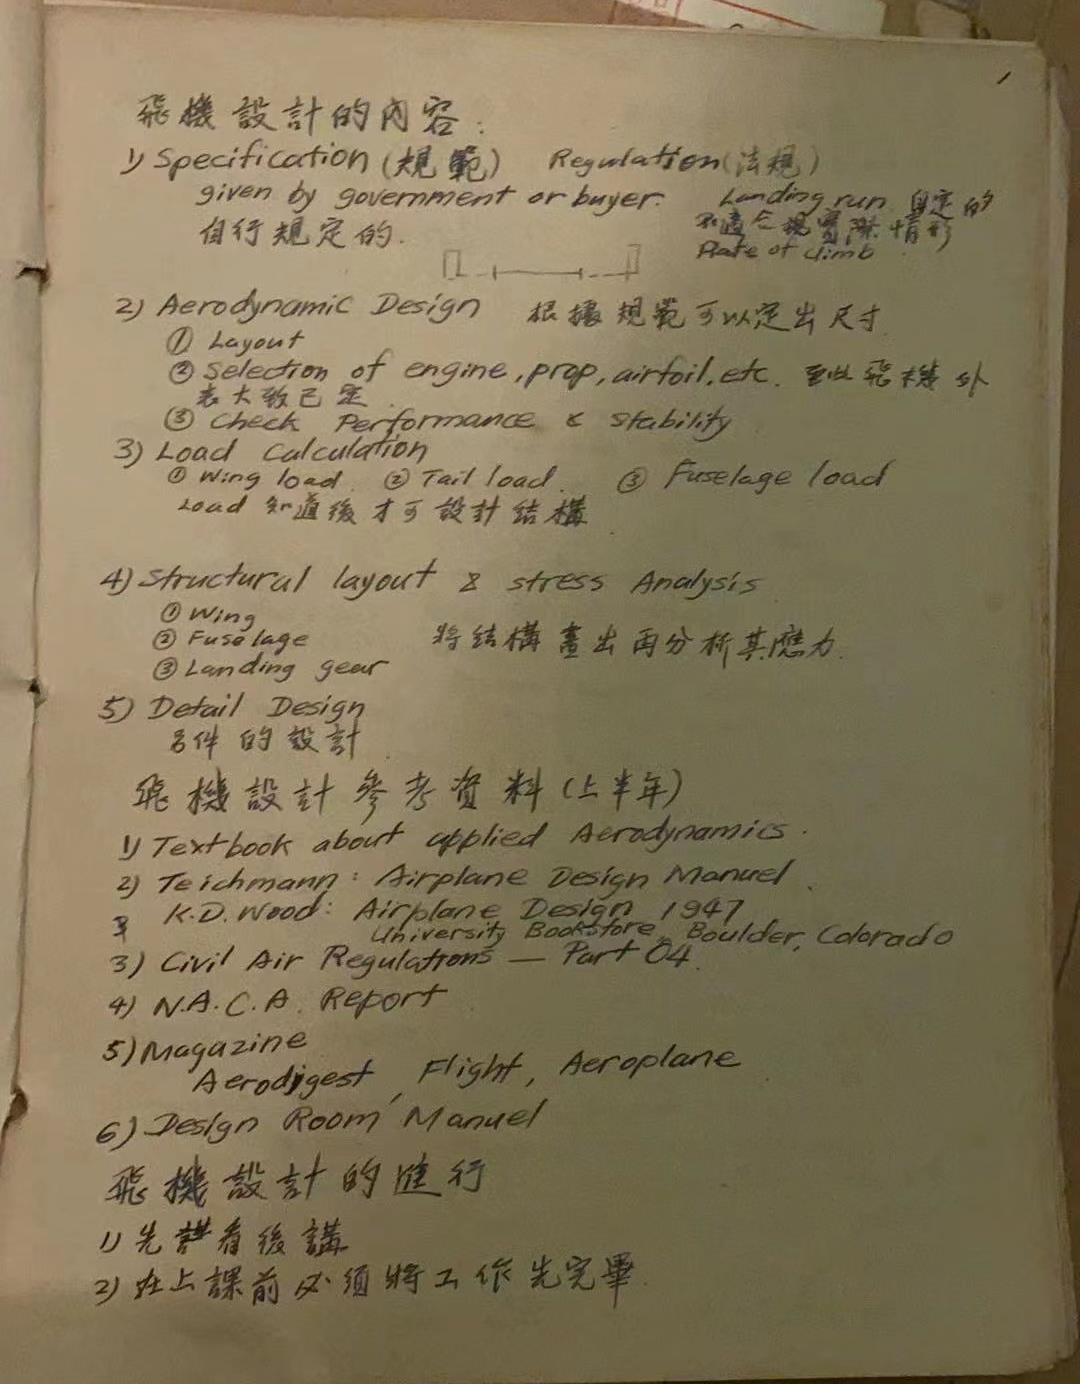 1
飛機設計的內容:
1) Specification (規範) Regulation (法規)
given by government or buyer. Landing run 自定的
自行規定的. 不適合 實際情形
Rate of climb
2) Aerodynamic Design 根據規範可以定出尺寸
① Layout
② Selection of engine, prop, airfoil, etc. 至此飛機外
表大致已定.
③ Check Performance & Stability
3) Load Calculation
① Wing load. ② Tail load. ③ Fuselage load
Load 知道後才可設計結構
4) Structural layout & stress Analysis
① Wing
② Fuselage 將結構畫出再分析其應力.
③ Landing gear
5) Detail Design
各件的設計
飛機設計參考資料(上半年)
1) Textbook about applied Aerodynamics.
2) Teichmann: Airplane Design Manuel.
K.D. Wood: Airplane Design 1947
University Bookstore, Boulder, Colorado
3) Civil Air Regulations — Part 04.
4) N.A.C.A. Report
5) Magazine
Aerodigest, Flight, Aeroplane
6) Design Room Manuel
飛機設計的進行
1) 先 看後講
2) 在上課前必須將工作先完畢.